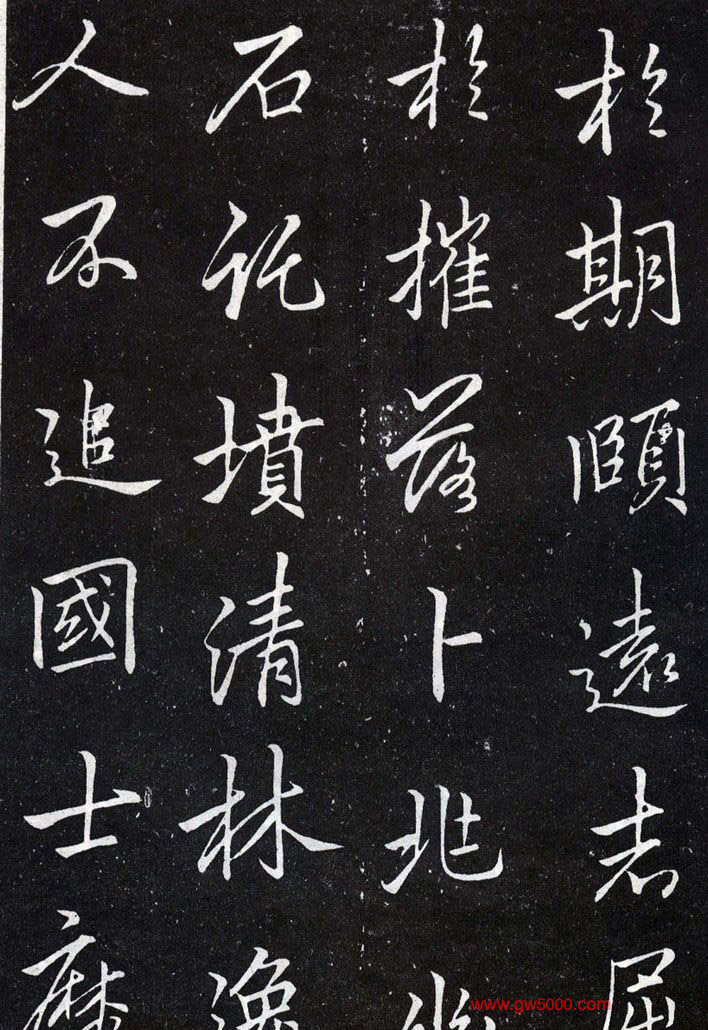 於期頤遠志屈
於摧落卜兆
石託墳清林逸
人不追國士
www.gw5000.com